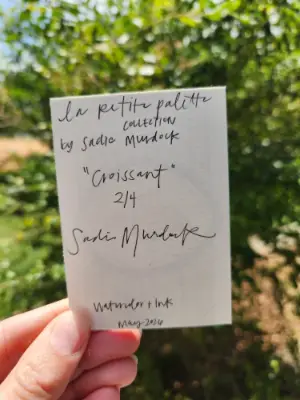 la petite palette
COLLECTION
by Sadie Murdock
"Croissant"
2/4
Sadie Murdock
Watercolor + Ink
May 2024